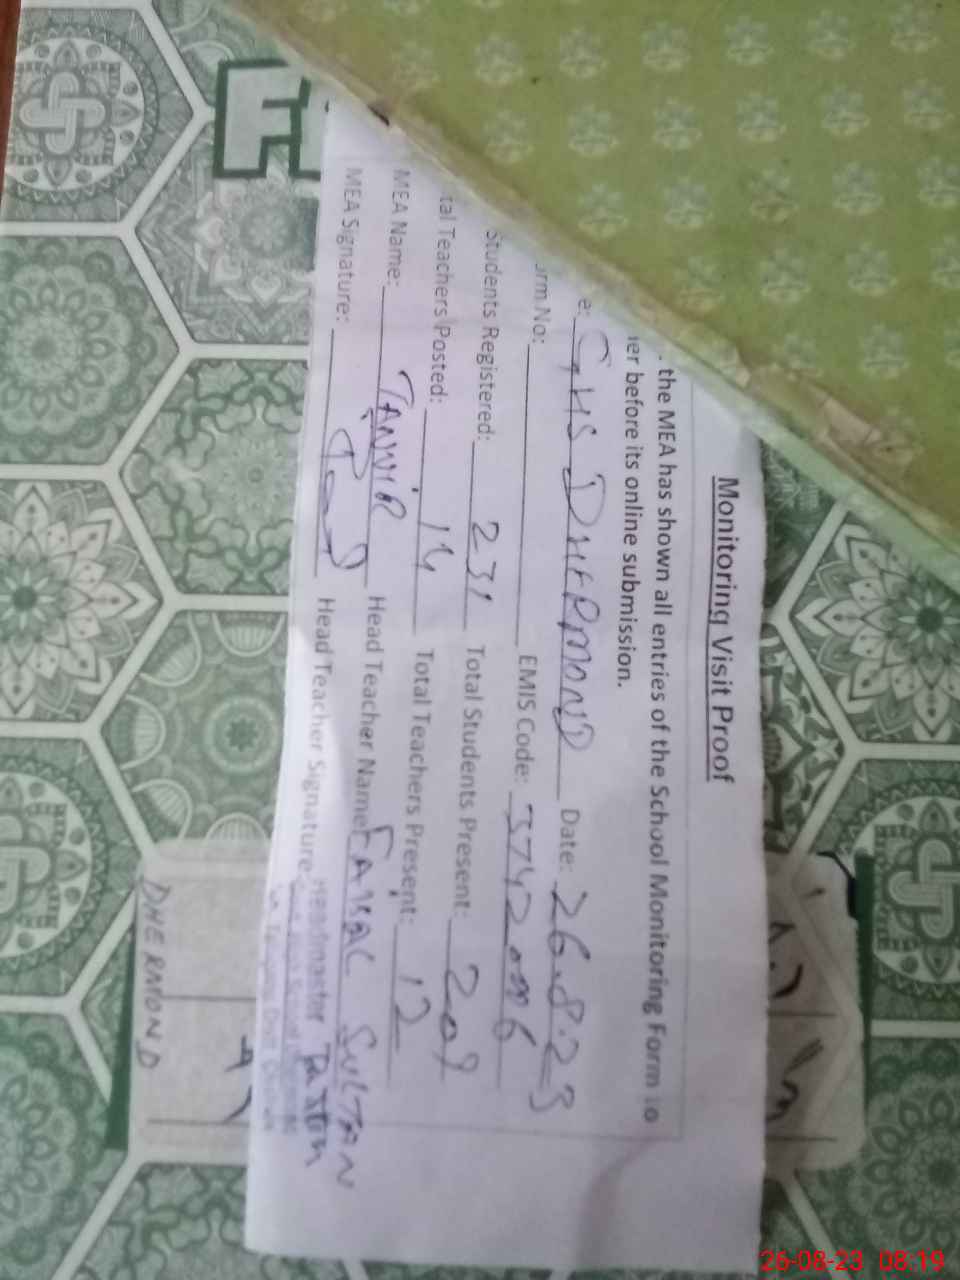 Monitoring Visit Proof
the MEA has shown all entries of the School Monitoring Form to
before its online submission.
GHS DHERMOND Date: 26.8.23
No: EMIS Code:
Students Registered: 231 Total Students Present: 209
Teachers Posted: 14 Total Teachers Present: 12
MEA Name: TANVIR Head Teacher Name: SULTAN
MEA Signature: Head Teacher Signature:
Headmaster
DHERMOND
26-08-23 08:19